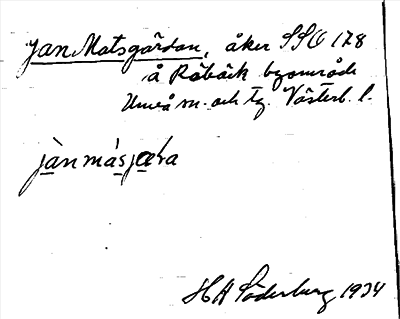 Jan Matsgårdan, åker SSO 178
å Röbäck byområde
Umeå sn. och tg. Västerb. l.
jànmás
H A Söderberg 1934